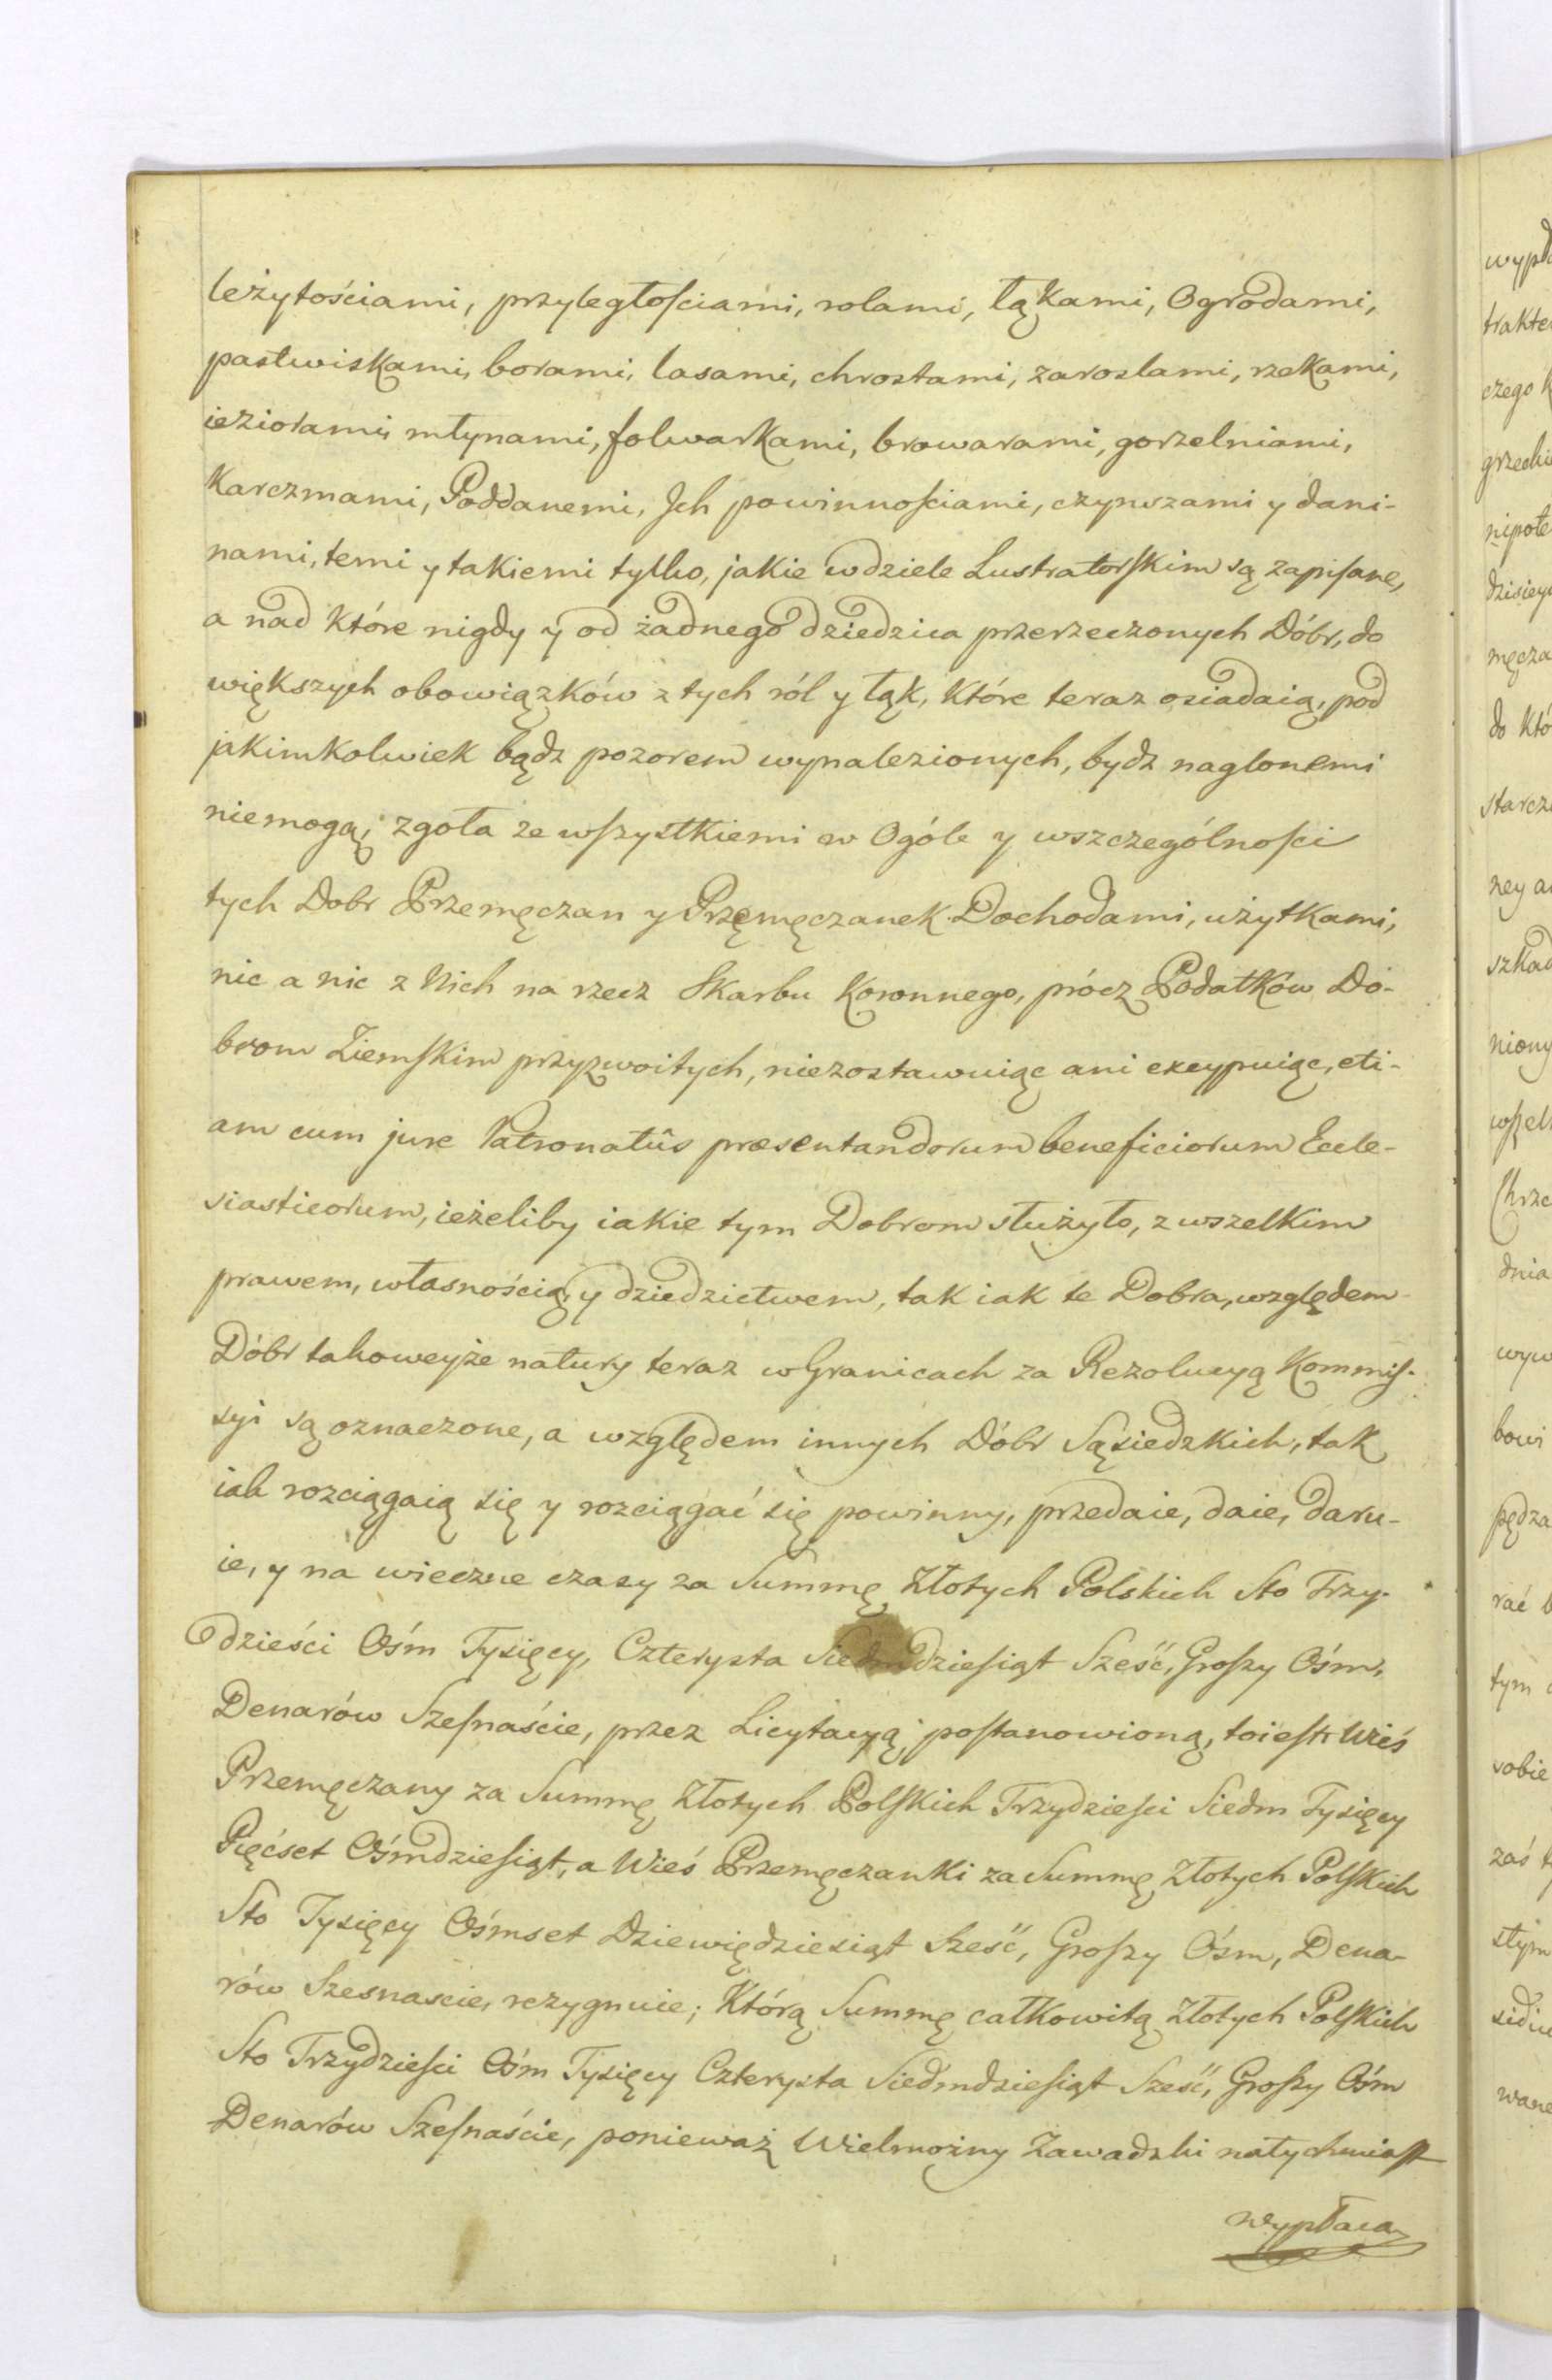 leżytościami, przyległościami, rolami, łąkami, Ogrodami,
pastwiskami, borami, lasami, chrostami, zaroslami, rzekami,
ieziorami, młynami, folwarkami, browarami, gorzelniami,
Karczmami, Poddanemi, Jch powinnościami, czynszami y dani-
nami, temi y takiemi tylko, jakie w dziele Lustratorskim są zapisane,
a nad które nigdy y od żadnego dziedzica przerzeczonych Dóbr, do
większych obowiązków z tych ról y łąk, które teraz osiadaią, pod
jakimkolwiek bądz pozorem wynalezionych, bydz naglonemi
niemogą; zgoła ze wszystkiemi w Ogóle y wszczególności
tych Dobr Przemęczan y Przęmęczanek Dochodami, użytkami,
nic a nic z Nich na rzecz Skarbu Koronnego, prócz Podatków Do-
brom Ziemskim przyzwoitych, niezostawuiąc ani excypuiąc, eti-
am cum jure Patronatûs præsentandorum beneficiorum Eccle-
siasticorum, ieżeliby iakie tym Dobrom służyło, z wszelkim
prawem, własnością, y dziedzictwem, tak iak te Dobra, względem
Dóbr takoweyże natury teraz w Granicach za Rezolucyą Kommis-
syi są oznaczone, a względem innych Dóbr Sąsiedzkich, tak
iak rozciągaią się y rozciągać się powinny, przedaie, daie, daru-
ie, y na wieczne czasy za Summę Złotych Polskich Sto Trzy-
dzieści Ośm Tysięcy, Czterysta Siedmdziesiąt Sześć, Groszy Ośm,
Denarów Szesnaście, przez Licytacyą postanowioną, toiest: Wieś
Przemęczany za Summę Złotych Polskich Trzydziesci Siedm Tysięcy
Pięćset Ośmdziesiąt, a Wieś Przemęczanki za Summę Złotych Polskich
Sto Tysięcy Ośmset Dziewiędziesiąt Sześć, Groszy Ośm, Dena-
rów Szesnascie, rezygnuie; Którą Summę całkowitą Złotych Polskich
Sto Trzydziesci Ośm Tysięcy Czterysta Siedmdziesiąt Sześć, Groszy Ośm
Denarów Szesnaście, ponieważ Wielmożny Zawadzki natychmiast
wypłaca